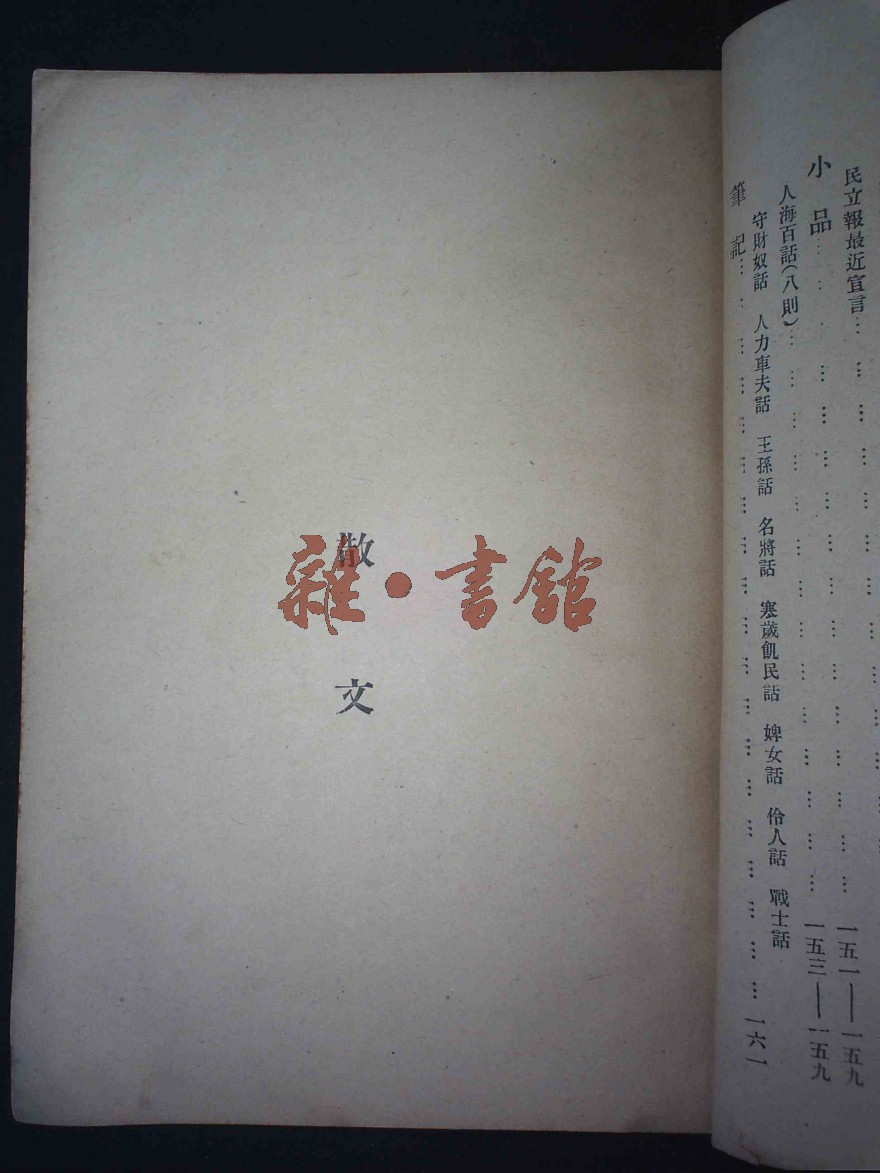 民立報最近宣言………………………
小品……………………………一五一——一五九
人海百話(八則)……………………………一五三——一五九
守財奴話　人力車夫話　王孫話　名將話　塞歲飢民話　婢女話　伶人話　戰士話
筆記……………………………一六一
散文
雜·書館